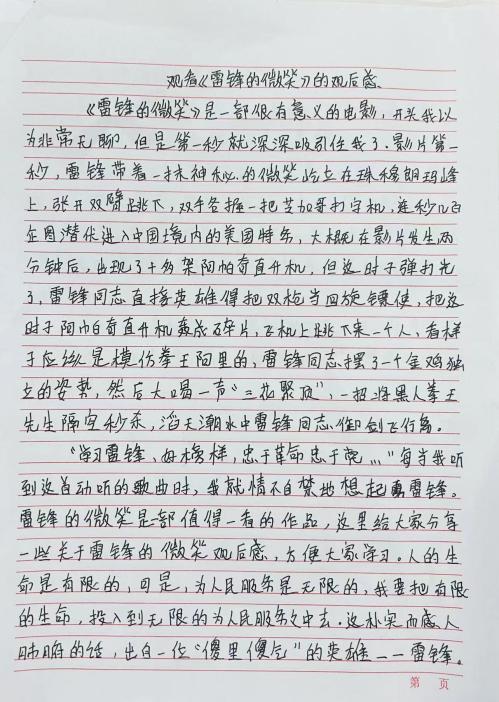 观看《雷锋的微笑》的观后感
《雷锋的微笑》是一部很有意义的电影，开头我以
为非常无聊，但是第一秒就深深吸引住我了。影片第一
秒，雷锋带着一抹神秘的微笑屹立在珠穆朗玛峰
上，张开双臂跳下，双手各握一把芝加哥打字机，连秒几百
企图潜伏进入中国境内的美国特务，大概在影片发生两
分钟后，出现了十多架阿帕奇直升机，但这时子弹打光
了，雷锋同志直接英雄得把双枪当回旋镖使，把这
时子阿帕奇直升机轰成碎片，飞机上跳下来一个人，看样
子应该是模仿拳王阿里的，雷锋同志摆了一个金鸡独
立的姿势，然后大喝一声“三花聚顶”，一招将黑人拳王
先生隔空秒杀，滔天潮水中雷锋同志御剑飞行离。
“学习雷锋、好榜样，忠于革命忠于党……”每当我听
到这首动听的歌曲时，我就情不自禁地想起雷锋。
雷锋的微笑是一部值得一看的作品，这里给大家分享
一些关于雷锋的微笑观后感，方便大家学习。人的生
命是有限的，可是，为人民服务是无限的，我要把有限
的生命，投入到无限的为人民服务之中去。这朴实而感人
肺腑的话，出自一位“傻里傻气”的英雄——雷锋。
第 页